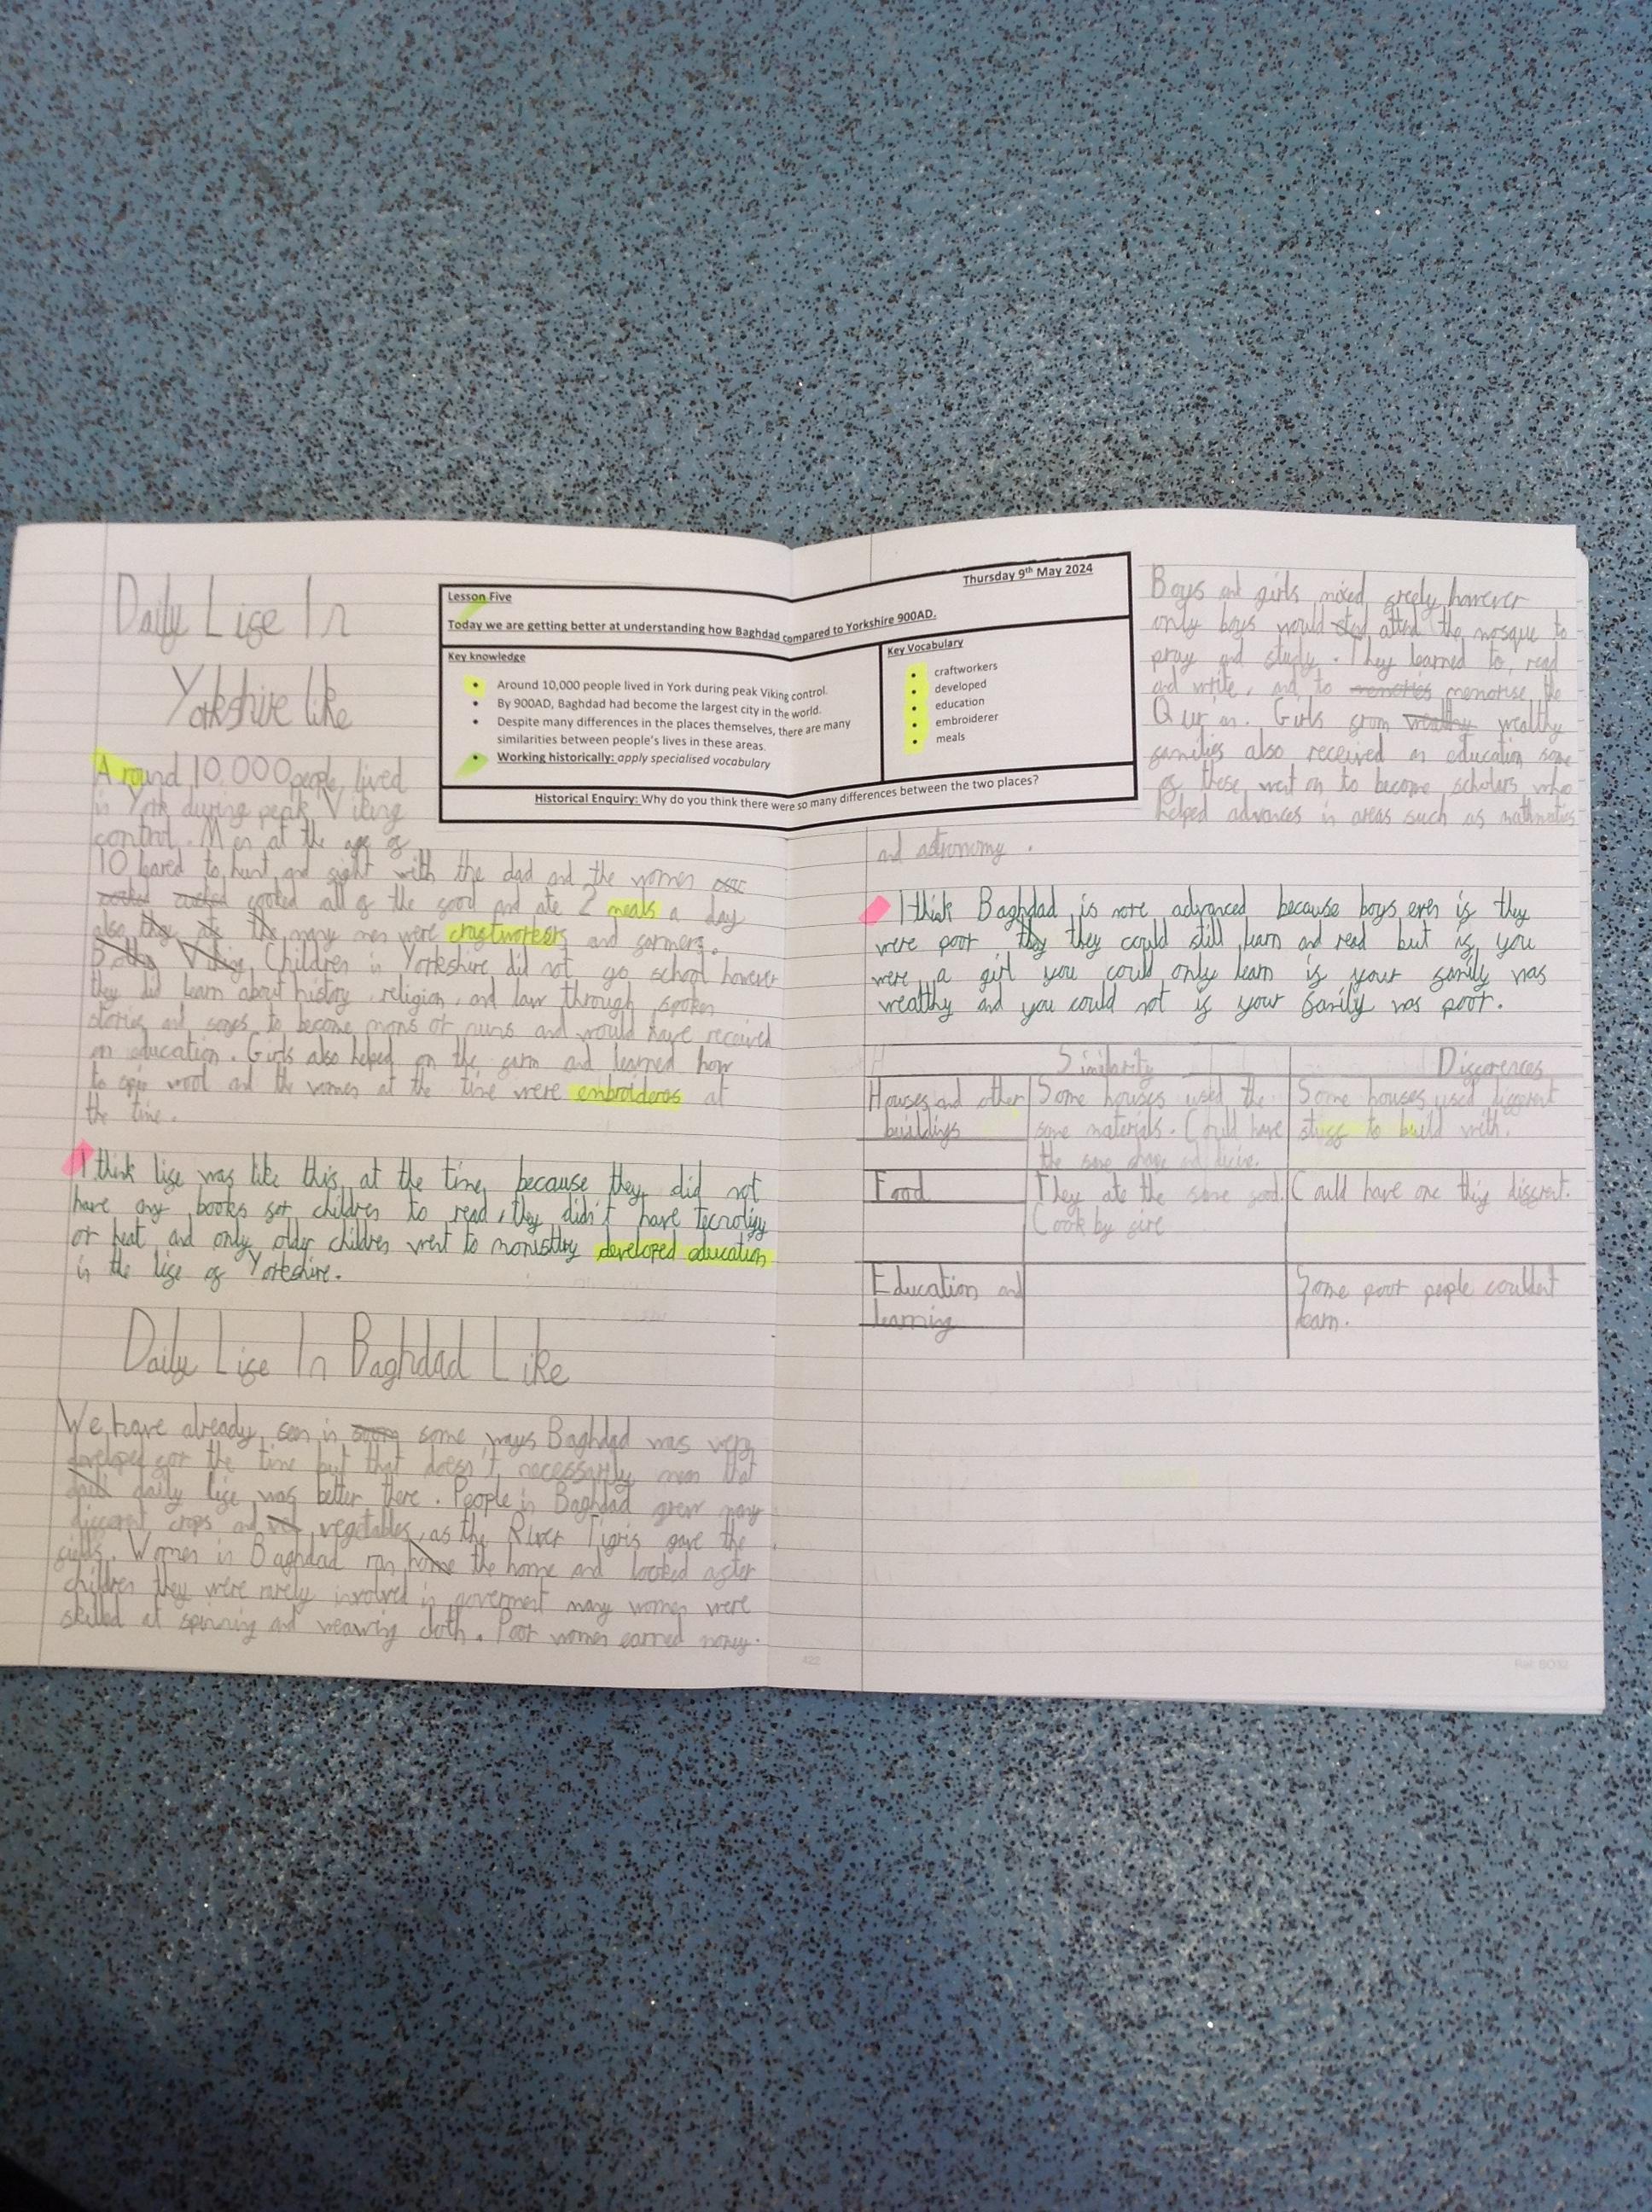 Daily Life In
Yorkshire like
Around 10,000 people, lived
in York during peak Viking
control. Men at the age of
10 bared to hunt and fight with the dad and the women
cooked all of the food and ate 2 meals a day
also they at the many men were craftworkers and farmers.
Boths Viking Children in Yorkshire did not go school however
they did learn about history, religion, and law through spoken
stories and songs to become mons or nuns and would have received
an education. Girls also helped on the farm and learned how
to spin wool and the women at the time were embroideras at
the time.
I think life was like this, at the time, because they did not
have any books for children to read, they didn't have tecnoligy
or heat and only older children went to monistry developed education
in the life of Yorkshire.
Daily Life In Baghdad Like
We have already seen in soom some ways Baghdad was very
developed for the time but that doesn't necessarily mean that
daili daily life was better there. People in Baghdad grew many
different crops and ved vegetables, as the River Tigris gave the
fields. Women in Baghdad ran home the home and looked after
children they were rarely involved in goverment many women were
skilled at spinning and weawing cloth. Poor women earned money.
422
Thursday 9th May 2024
Lesson Five
Today we are getting better at understanding how Baghdad compared to Yorkshire 900AD.
Key knowledge
• Around 10,000 people lived in York during peak Viking control.
• By 900AD, Baghdad had become the largest city in the world.
• Despite many differences in the places themselves, there are many
similarities between people's lives in these areas.
• Working historically: apply specialised vocabulary
Key Vocabulary
• craftworkers
• developed
• education
• embroiderer
• meals
Historical Enquiry: Why do you think there were so many differences between the two places?
Boys and girls mixed freely however
only boys would atted the mosque to
pray and study. They learned to read
and write, and to memories memorise the
Qur'an. Girls from wealthy wealthy
families also received an education some
of these went on to become scholars who
helped advances in areas such as mathmatics
and astronomy.
I think Baghdad is more advanced because boys even if they
were poor they they could still learn and read but if you
were a girl you could only learn if your family was
wealthy and you could not if your family was poor.
Similarity
Differences
Houses and other
buildings
Some houses used the
same materials. Could have
the same shape and
Some houses used different
stuff to build with.
Food
They ate the same food.
Cook by fire
Could have one thig diffrent.
Education and
learning
Some poor people couldent
learn.